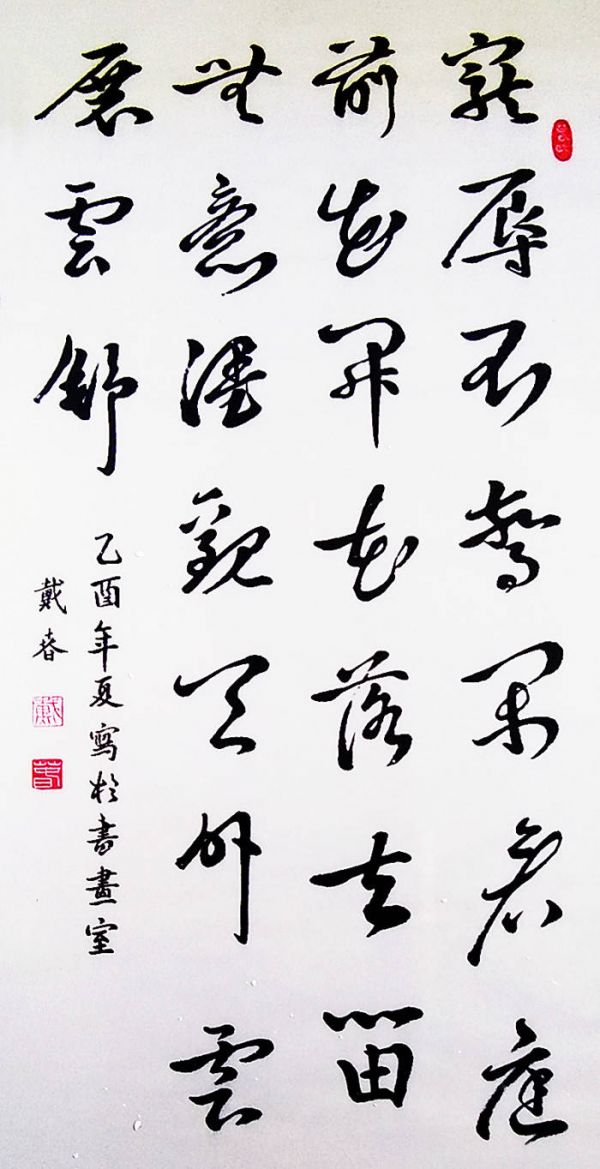 寵辱不驚閑看庭
前花開花落去留
無意漫觀天外雲
展雲舒
乙酉年夏寫於書畫室
戴春